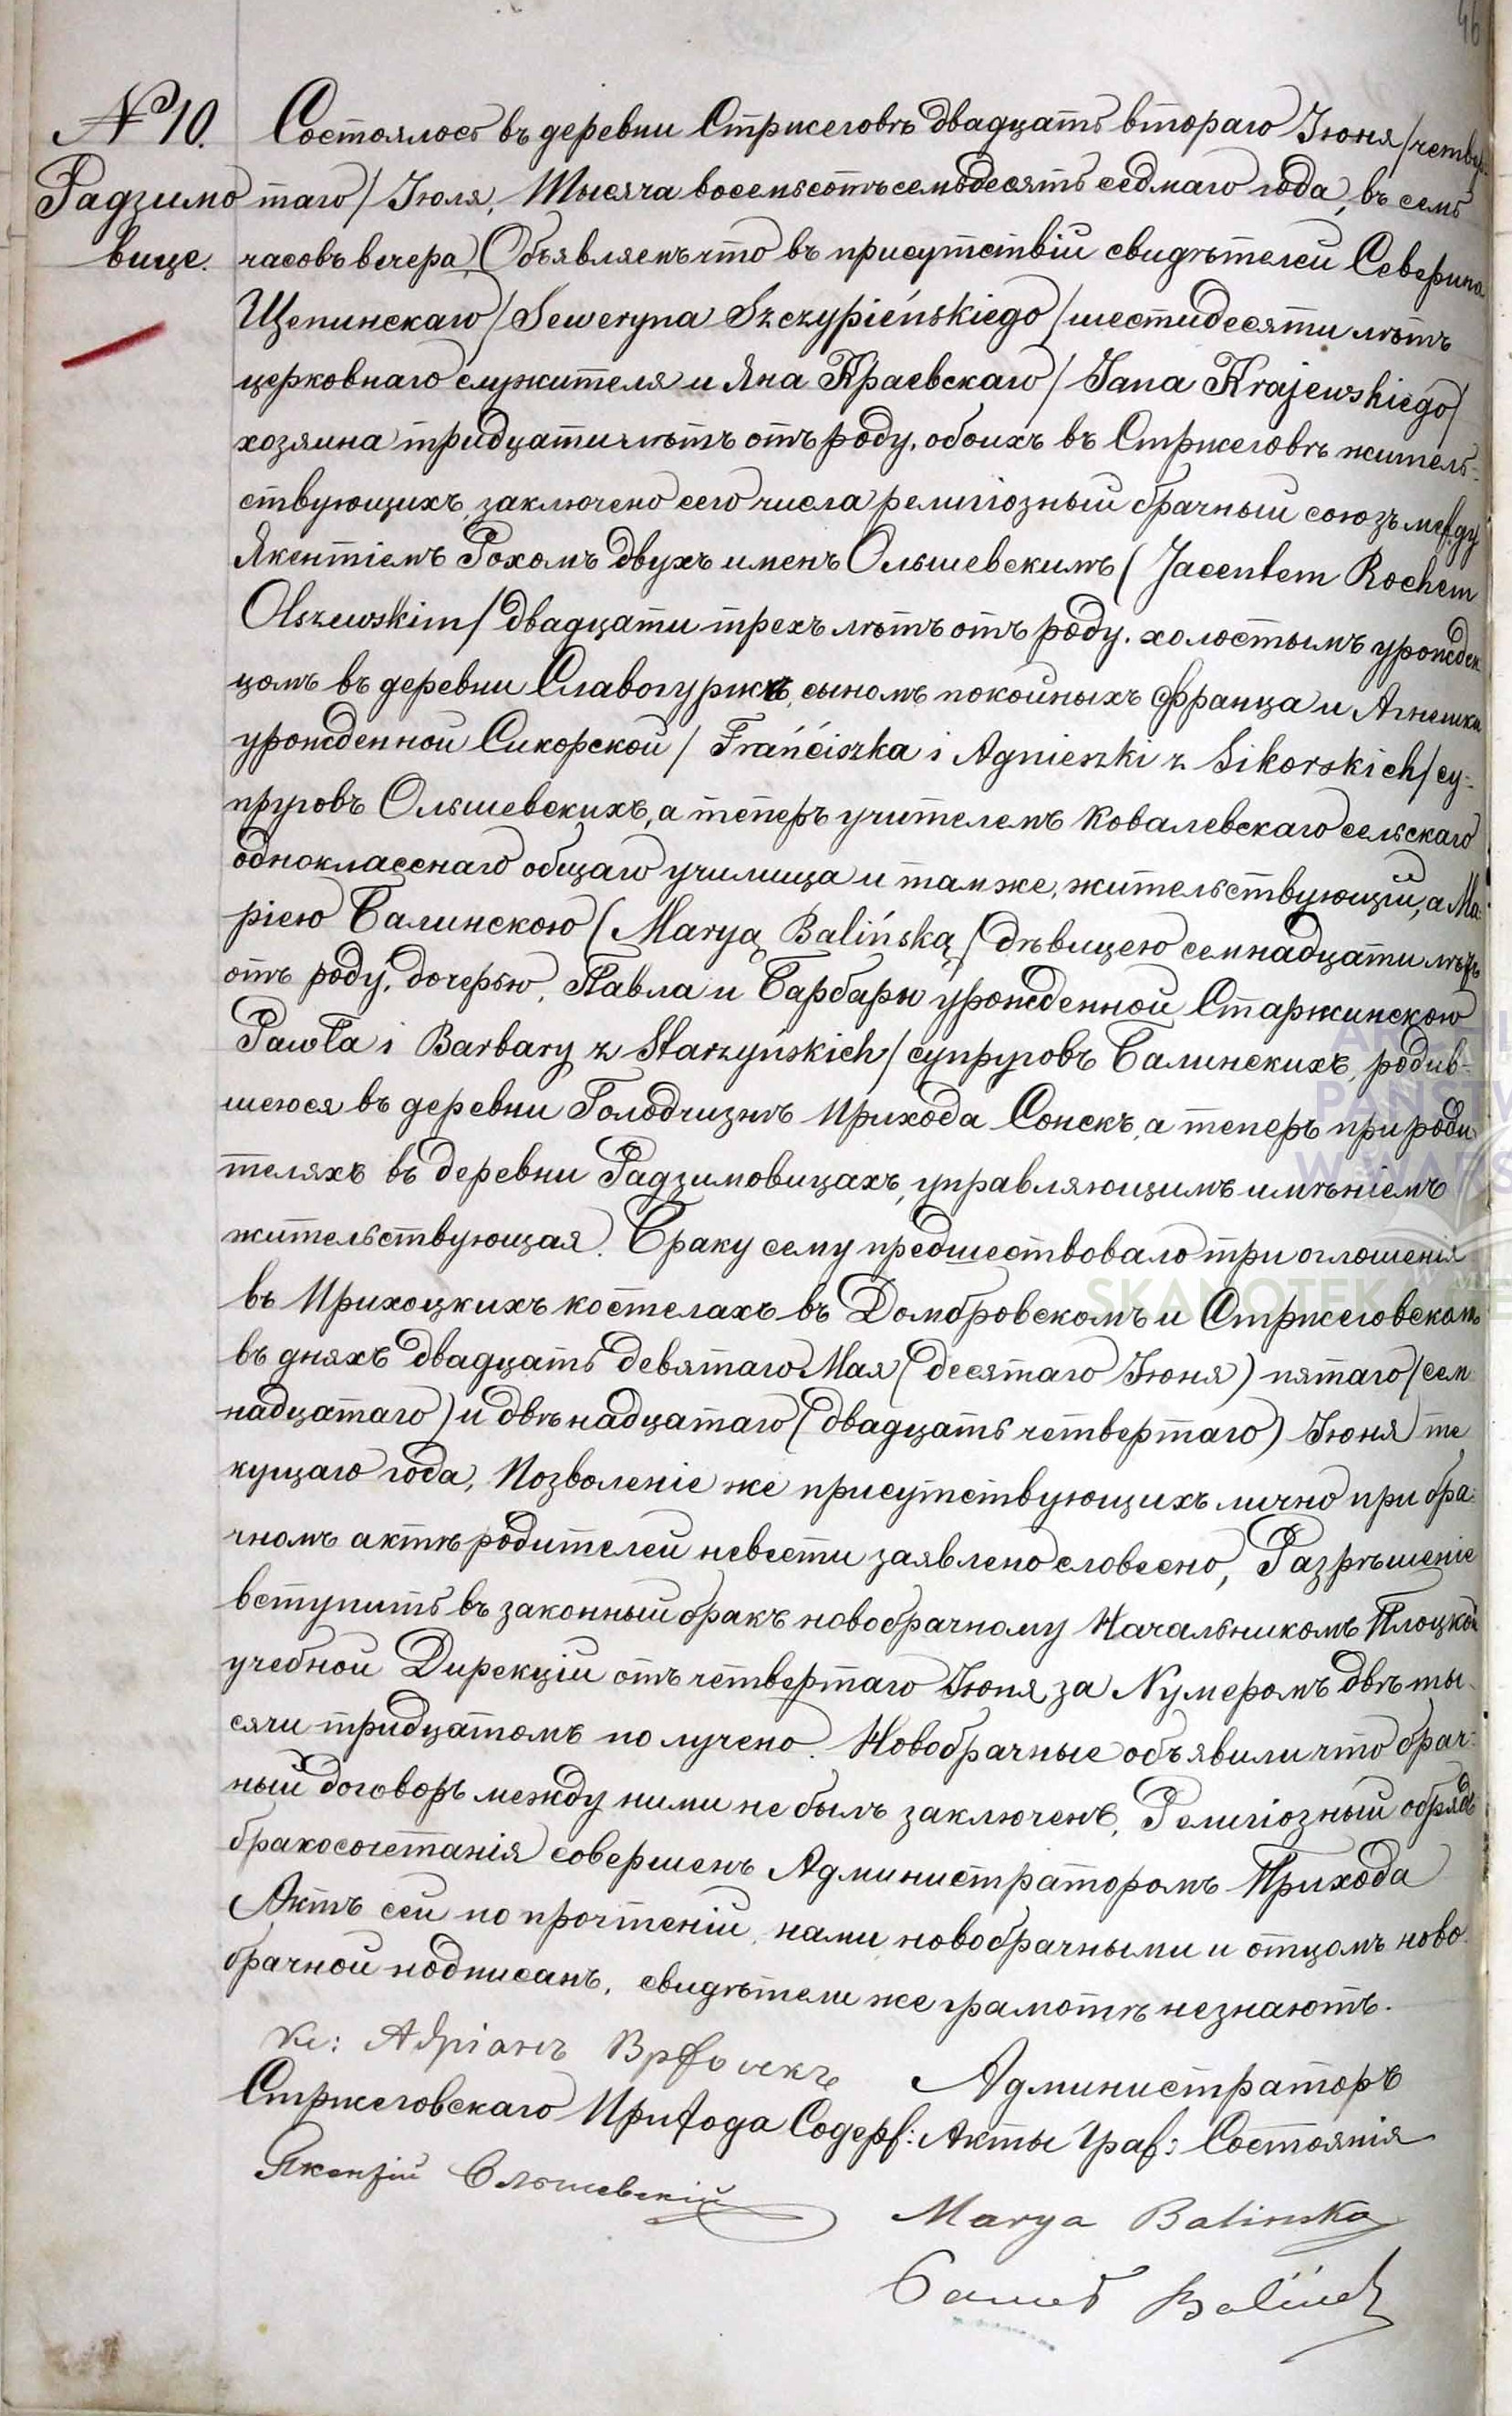 46
№ 10.
Радзимо
вице.
Состоялось въ деревни Стржеговѣ двадцать втораго Іюня /четвер-
таго/ Іюля, Тысяча восемьсотъ семьдесятъ седмаго года, въ семь
часовъ вечера, Объявляемъ что въ присутствіи свидѣтелей Северина
Щепинскаго /Seweryna Szczypieńskiego/ шестидесяти лѣтъ
церковнаго служителя и Яна Краевскаго /Jana Krajewskiego/
хозяина тридцати лѣтъ отъ роду, обоихъ въ Стржеговѣ житель-
ствующихъ, заключено сего числа религіозный брачный союзъ между
Якентіемъ Рохомъ двухъ именъ Ольшевскимъ (Jacentem Rochem
Olszewskim/ двадцати трехъ лѣтъ отъ роду, холостымъ урожден-
цомъ въ деревни Славогуржѣ, сыномъ покойныхъ Франца и Агнешки
урожденной Сикорской /Franciszka i Agnieszki z Sikorskich/ су-
пруговъ Ольшевскихъ, а теперъ учителемъ Ковалевскаго сельскаго
одноклассnаго общаго училища и тамже, жительствующій, а Ма-
ріею Балинскою (Maryą Balińską/ дѣвицею семнадцати лѣтъ
отъ роду, дочерью, Павла и Барбары урожденной Старжинскою
Pawła i Barbary z Starzyńskich/ супруговъ Балинскихъ, родив-
шеюся въ деревни Голодчизнѣ Прихода Сонскъ, а теперъ при роди-
теляхъ въ деревни Радзимовицахъ, управляющимъ имѣніемъ
жительствующая. Браку сему предшествовало три оглошенія
въ Приходцкихъ костелахъ въ Домбровскомъ и Стржеговскомъ
въ дняхъ двадцать девятаго Мая (десятаго Іюня) пятаго /сем-
надцатаго) и двѣнадцатаго (двадцать четвертаго) Іюня те
кущаго года, Позволеніе же присутствующихъ лично при бра-
чномъ актѣ родителей невести заявлено словесно, Разрѣшеніе
вступить въ законный бракъ новобрачному Начальникомъ Плоцкой
учебной Дирекціи отъ четвертаго Іюня за Нумеромъ двѣ ты-
сячи тридцатомъ получено. Новобрачные объявили что брач-
ный договоръ между ними не былъ заключенъ, Религіозный обрядъ
бракосочетанія совершенъ Администраторомъ Прихода
Актъ сей по прочтеніи, нами новобрачными и отцомъ ново-
брачной подписанъ, свидѣтели же грамотѣ незнаютъ.
Кс: Адріанъ Администраторъ
Стржеговскаго Прихода Содерж: Акты Граж: Состоянія
Якензій Ольшевскій
Marya Balinska